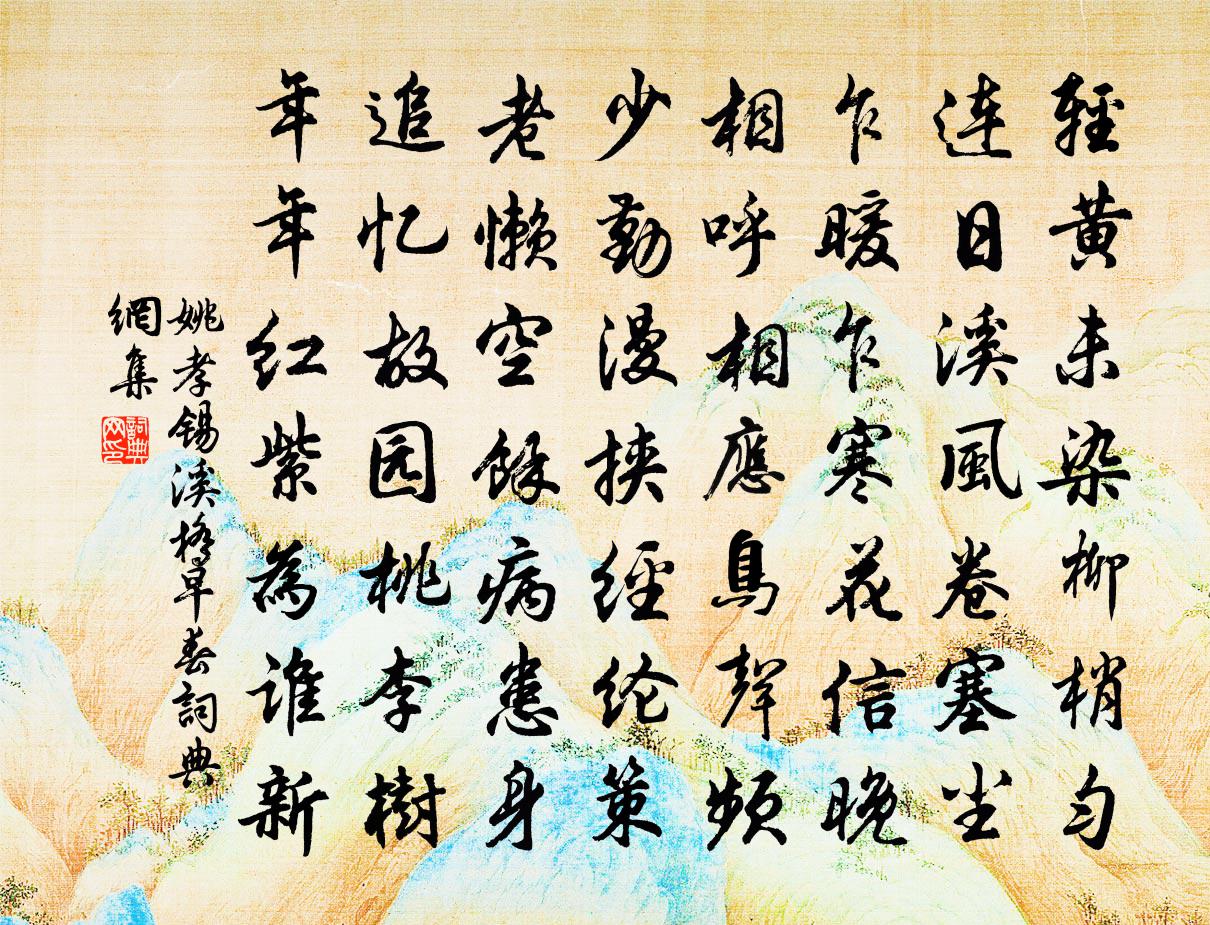 輕黄未染柳梢匀
連日溪風卷塞尘
乍暖乍寒花信晚
相呼相應鳥聲頻
少勤漫挟經纶策
老懒空餘病患身
追忆故园桃李樹
年年红紫為谁新
姚孝锡溪橋早春詞典
網集
詞典
网印